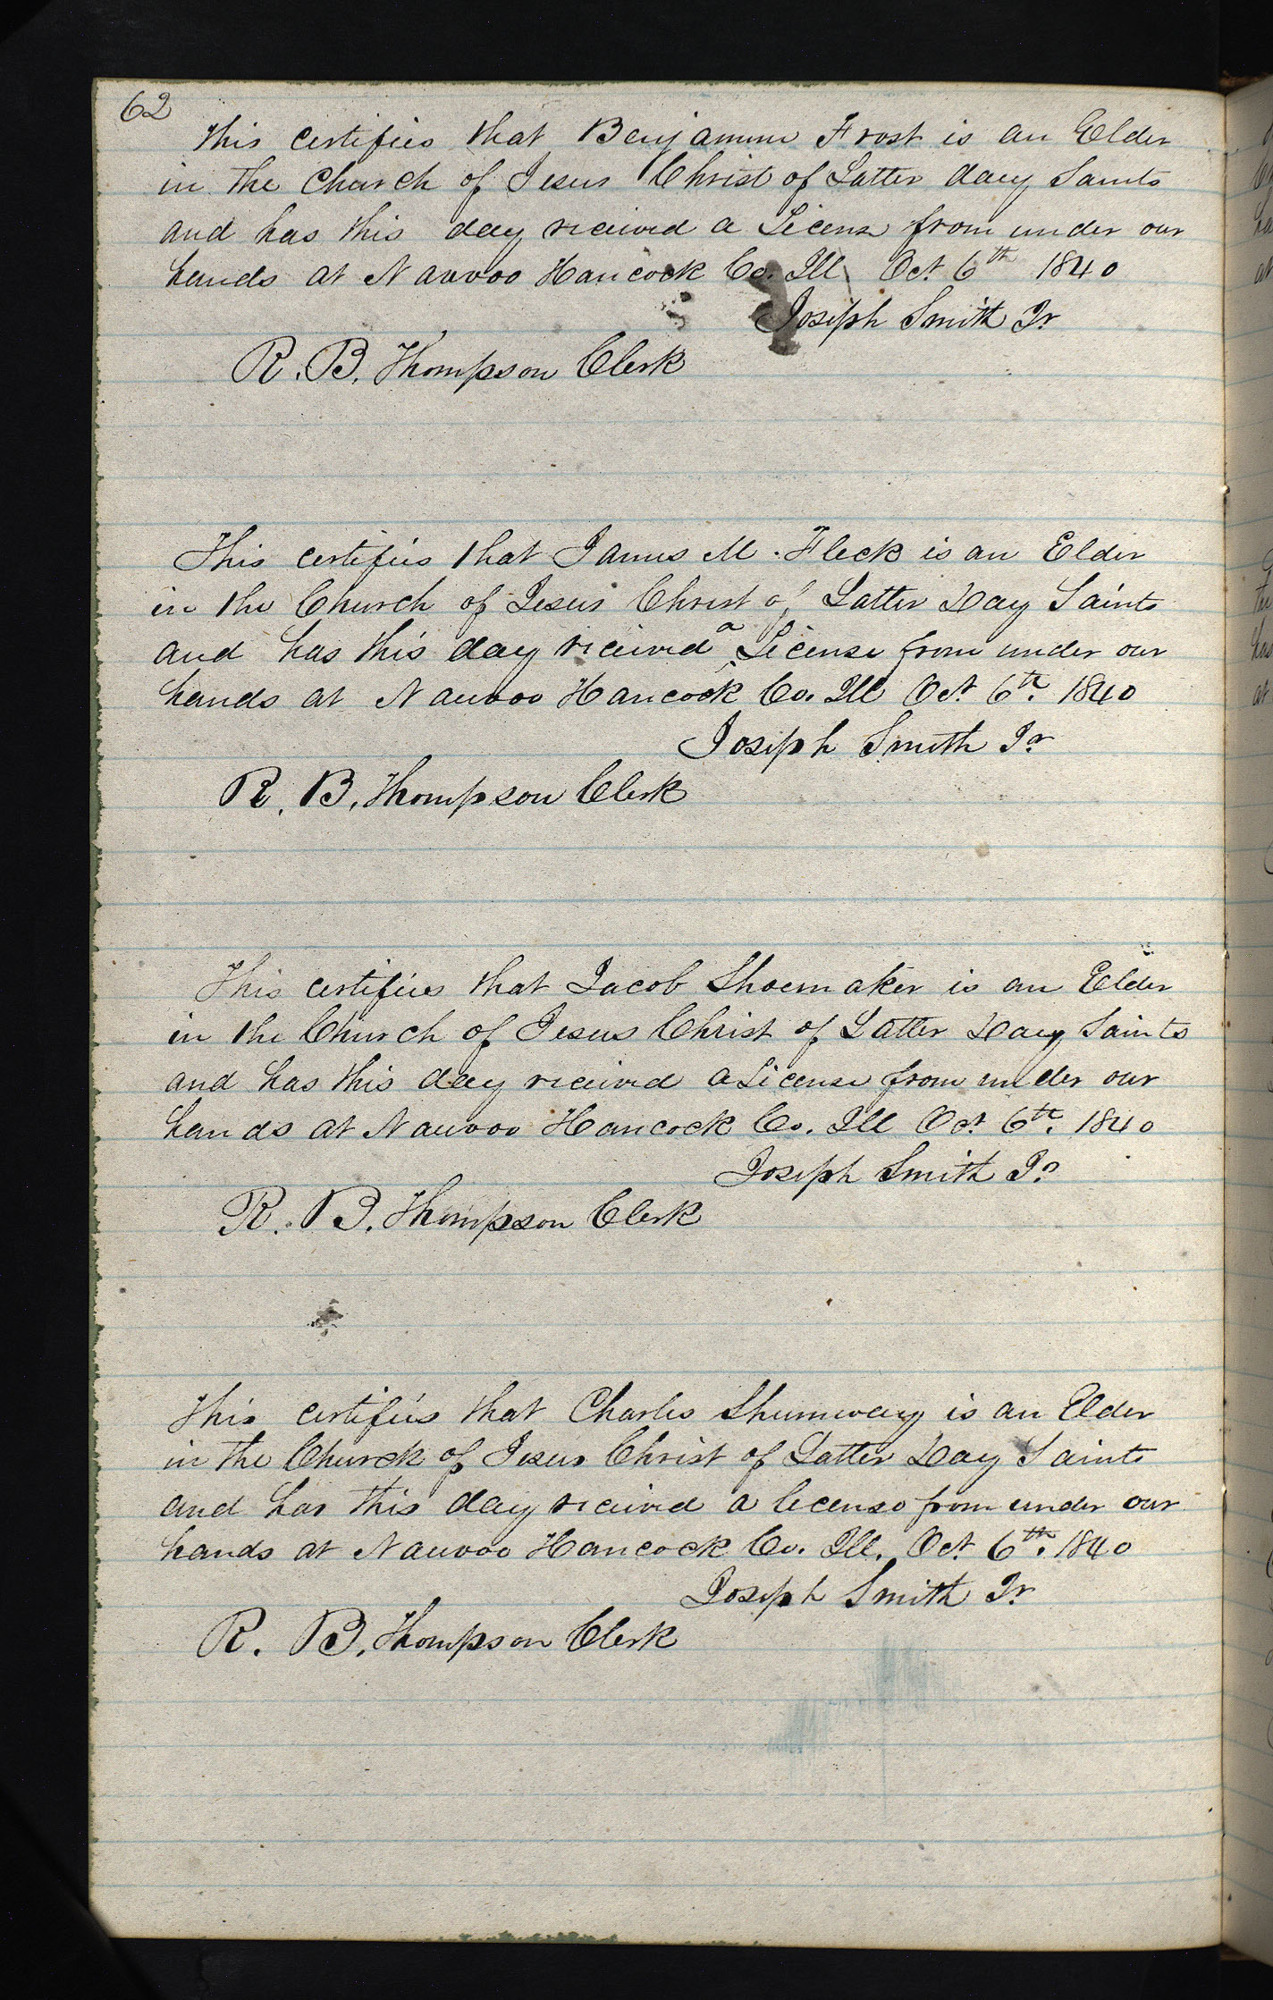 62
This certifies that Benjamin Frost is an Elder
in the Church of Jesus Christ of Latter day Saints
and has this day received a License from under our
hands at Nauvoo Hancock Co. Ill Oct 6th 1840
Joseph Smith Jr
R. B. Thompson Clerk
This certifies that James M. Fleck is an Elder
in the Church of Jesus Christ of Latter Day Saints
and has this day received a License from under our
hands at Nauvoo Hancock Co. Ill Oct 6th. 1840
Joseph Smith Jr
R. B. Thompson Clerk
This certifies that Jacob Shoemaker is an Elder
in the Church of Jesus Christ of Latter Day Saints
and has this day received a License from under our
hands at Nauvoo Hancock Co. Ill Oct 6th. 1840
Joseph Smith Jr
R. B. Thompson Clerk
This certifies that Charles Shumway is an Elder
in the Church of Jesus Christ of Latter Day Saints
and has this day received a license from under our
hands at Nauvoo Hancock Co. Ill. Oct 6th. 1840
Joseph Smith Jr
R. B. Thompson Clerk